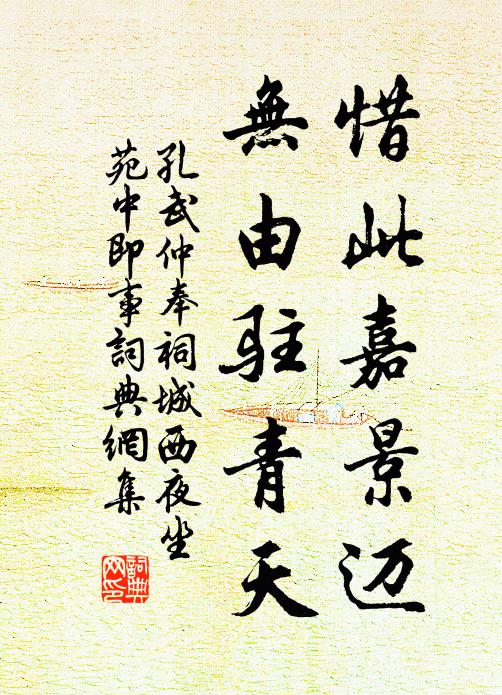 惜此嘉景迈
無由駐青天
孔武仲奉祠城西夜坐
苑中即事詞典網集
詞典
网印